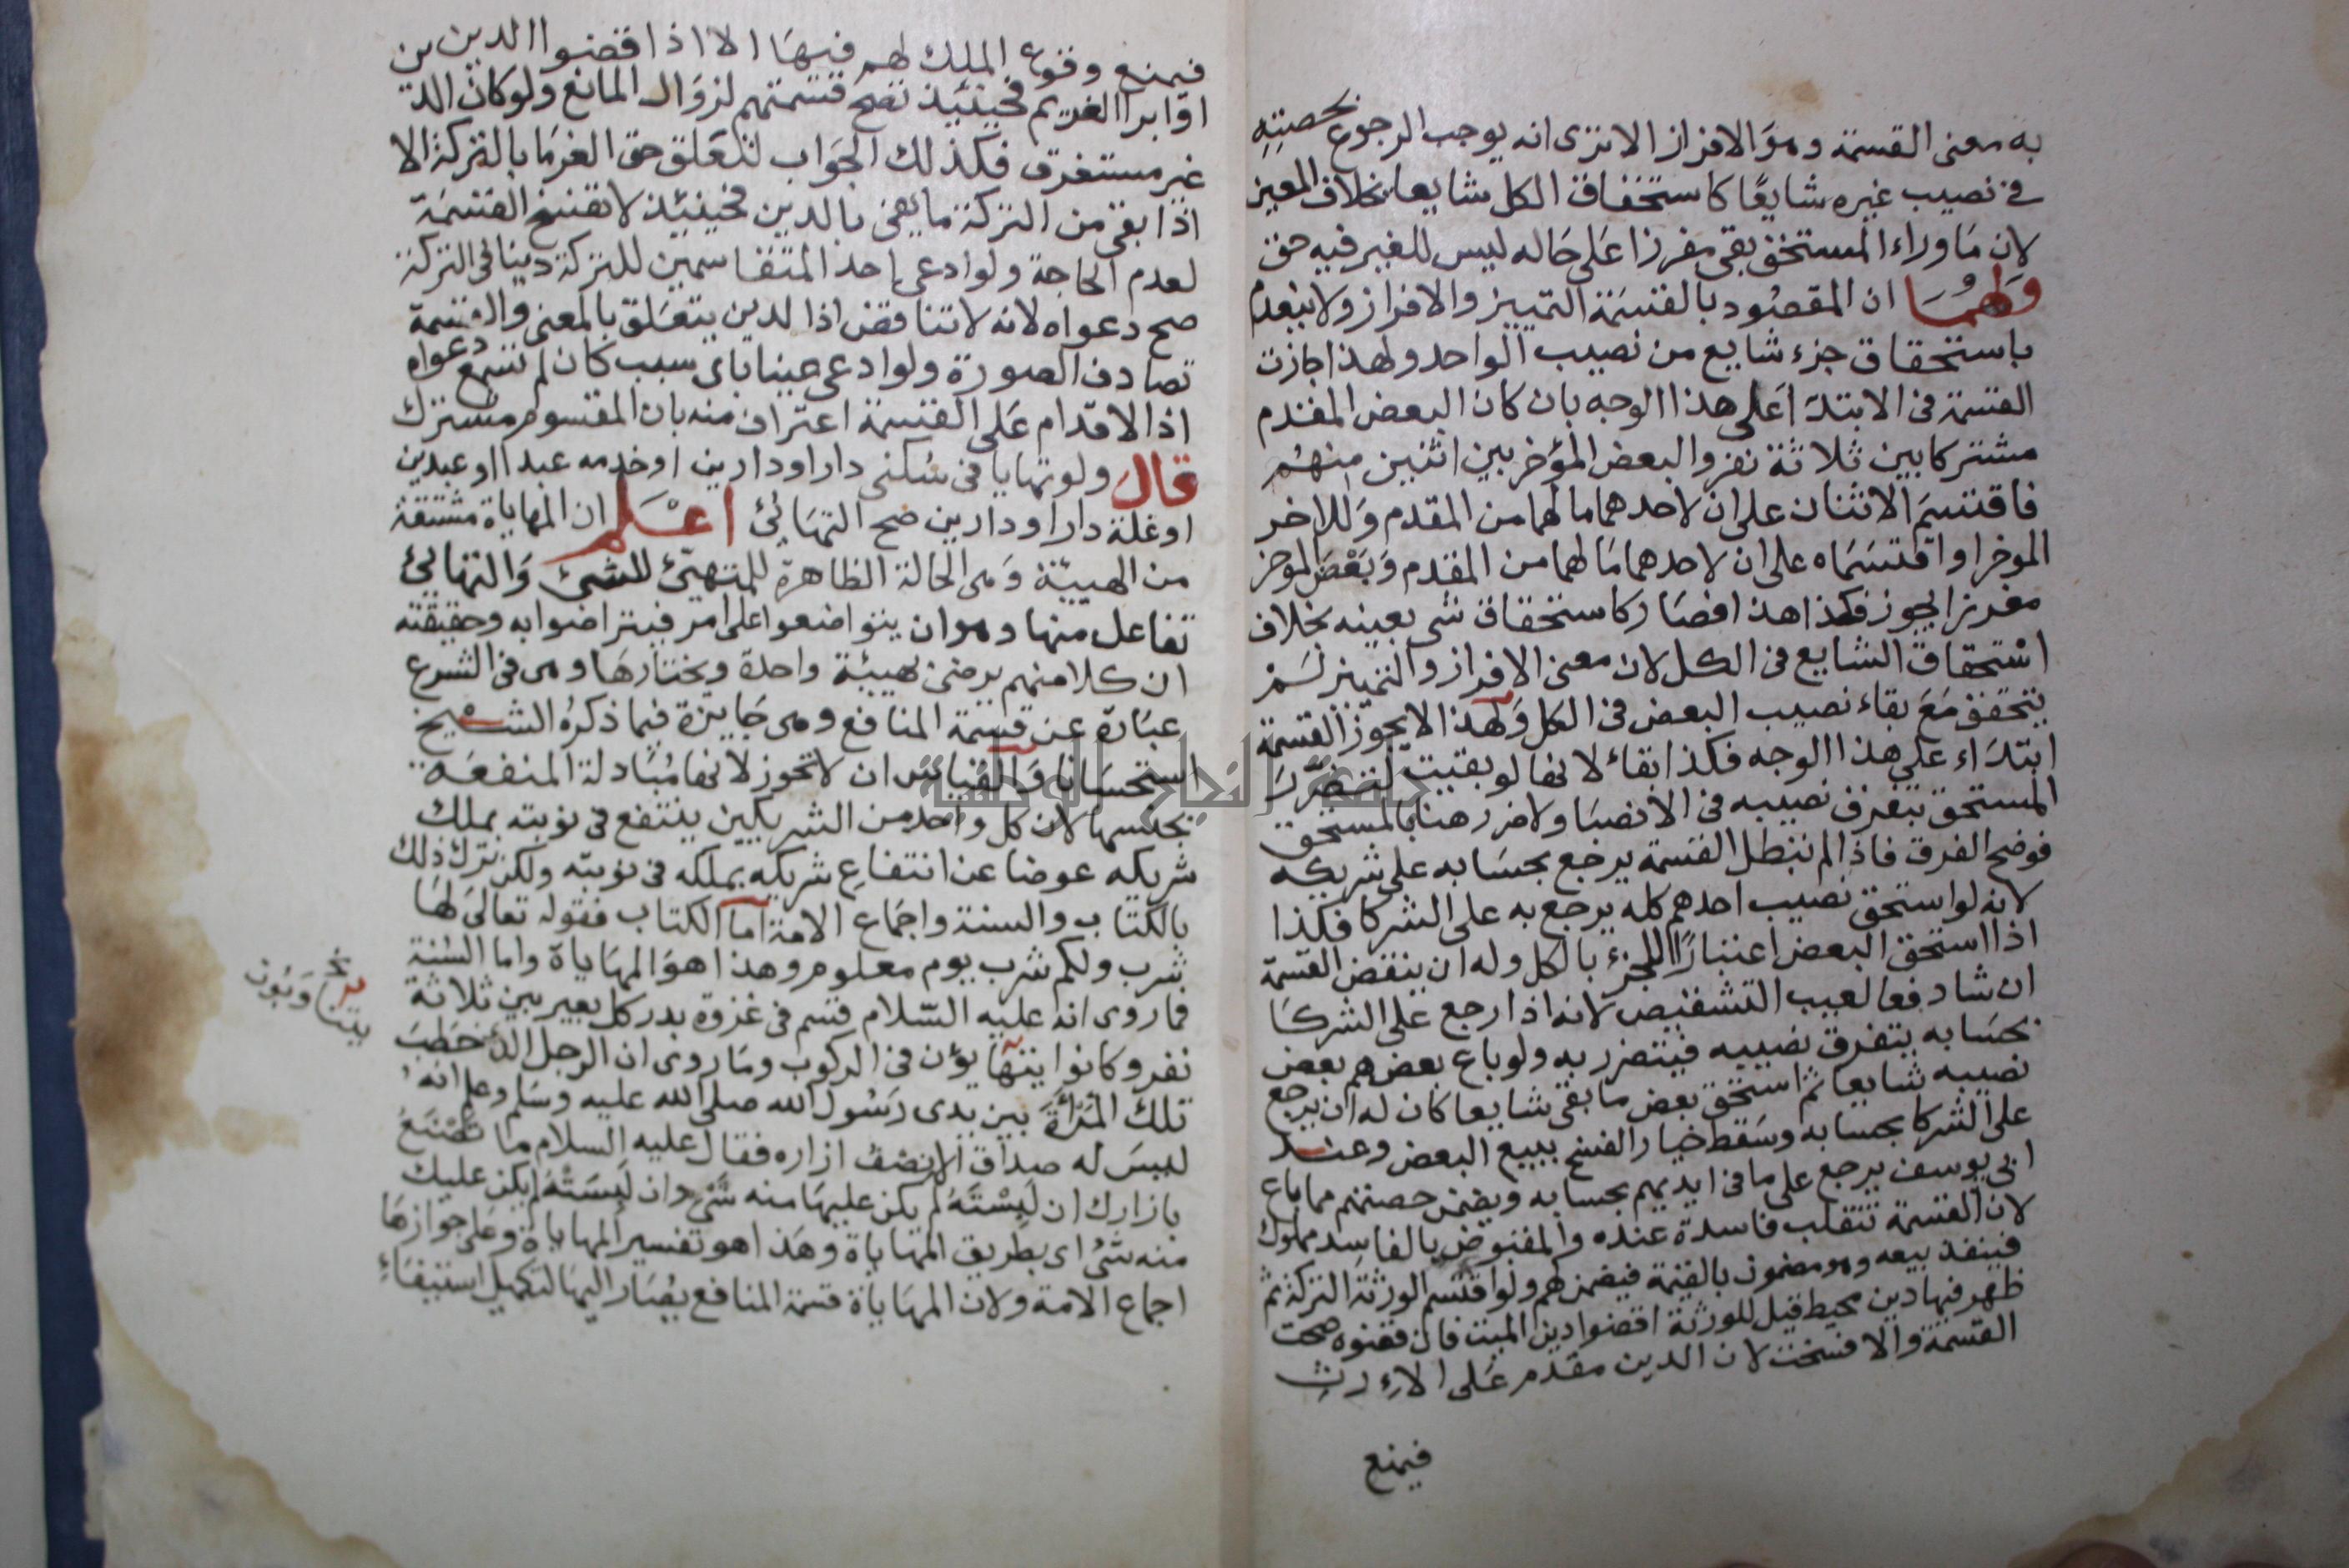 به معنى القسمة وهو الافراز الا ترى انه يوجب الرجوع بحصته
في نصيب غيره شايعا كاستحقاق الكل شايعا بخلاف المعين
لان ما وراء المستحق بقى مفرزا على حاله ليس للغير فيه حق
ولهما ان المقصود بالقسمة التمييز والافراز ولا ينعدم
باستحقاق جزء شايع من نصيب الواحد ولهذا جازت
القسمة فى الابتداء على هذا الوجه بان كان البعض المقدم
مشتركا بين ثلاثة نفر والبعض المؤخر بين اثنين منهم
فاقتسم الاثنان على ان لاحدهما ما لهما من المقدم وللاخر
الموخر او اقتسماه على ان لاحدهما ما لهما من المقدم وبعض الموخر
مفرزا يجوز فكذا هذا فصار كاستحقاق شى بعينه بخلاف
استحقاق الشايع فى الكل لان معنى الافراز والتمييز لم
يتحقق مع بقاء نصيب البعض فى الكل ولهذا لا يجوز القسمة
ابتداء على هذا الوجه فكذا بقاء لانها لو بقيت لتضرر
المستحق بتفرق نصيبه فى الانصبا ولا ضرر هنا بالمستحق
فوضح الفرق فاذا لم تبطل القسمة يرجع بحسابه على شريكه
لانه لو استحق نصيب احدهم كله يرجع به على الشركا فكذا
اذا استحق البعض اعتبارا للجزء بالكل وله ان ينقض القسمة
ان شا دفعا لعيب التشقيص لانه اذا رجع على الشركا
بحسابه يتفرق نصيبه فيتضرر به ولو باع بعضهم بعض
نصيبه شايعا ثم استحق بعض ما بقى شايعا كان له ان يرجع
على الشركا بحسابه وسقط خيار الفسخ ببيع البعض وعند
ابى يوسف يرجع على ما فى ايديهم بحسابه ويضمن حصتهم مما باع
لان القسمة تنقلب فاسدة عنده والمقبوض بالفاسد مملوك
فينفذ بيعه وهو مضمون بالقيمة فيضمن لهم ولو اقتسم الورثة التركة ثم
ظهر فيها دين محيط قيل للورثة اقضوا دين الميت فان قضوه صحت
القسمة والا فسخت لان الدين مقدم على الارث
فيمنع
فيمنع وقوع الملك لهم فيها الا اذا قضوا الدين من
او ابرا الغريم فحينئذ تصح قسمتهم لزوال المانع ولو كان الد
غير مستغرق فكذلك الجواب لتعلق حق الغرما بالتركة الا
اذا بقى من التركة ما يفى بالدين فحينئذ لا تفسخ القسمة
لعدم الحاجة ولو ادعى احد المتقاسمين للتركة دينا فى التركة
صح دعواه لانه لا تناقض اذ الدين يتعلق بالمعنى والقسمة
تصادف الصورة ولو ادعى عينا باى سبب كان لم تسمع دعواه
اذ الاقدام على القسمة اعتراف منه بان المقسوم مشترك
قال ولو تهايا فى سكنى دار او دارين او خدمه عبد او عبدين
او غلة دار او دارين صح التهائى اعلم ان المهاياة مشتقة
من الهيئة وهى الحالة الظاهرة للمتهيئ للشئ والتهائى
تفاعل منها وهو ان يتواضعوا على امر فيتراضوا به وحقيقته
ان كلا منهم يرضى بهيئة واحدة ويختارها وهى فى الشرع
عبارة عن قسمة المنافع وهى جايزة فيما ذكره الشيخ
استحسانا والقياس ان لا تجوز لانها مبادلة المنفعه
بجنسها لان كل واحد من الشريكين ينتفع فى نوبته بملك
شريكه عوضا عن انتفاع شريكه بملكه فى نوبته ولكن ترك ذلك
بالكتاب والسنة واجماع الامة اما الكتاب فقوله تعالى لها
شرب ولكم شرب يوم معلوم وهذا هو المهاياة واما السنة
فما روى انه عليه السلام قسم فى غزوة بدر كل بعير بين ثلاثة
نفر وكانوا يتهايؤن فى الركوب وما روى ان الرجل الذ خطب
تلك المرأة بين يدى رسول الله صلى الله عليه وسلم وعلم انه
ليس له صداق الا نصف ازاره فقال عليه السلام ما تصنع
بازارك ان لبسته لم يكن عليها منه شئ وان لبسته لم يكن عليك
منه شئ اى بطريق المهاياة وهذا هو تفسير المهاياة وعلى جوازها
اجماع الامة ولان المهاياة قسمة المنافع يصار اليها لتكميل استيفاء